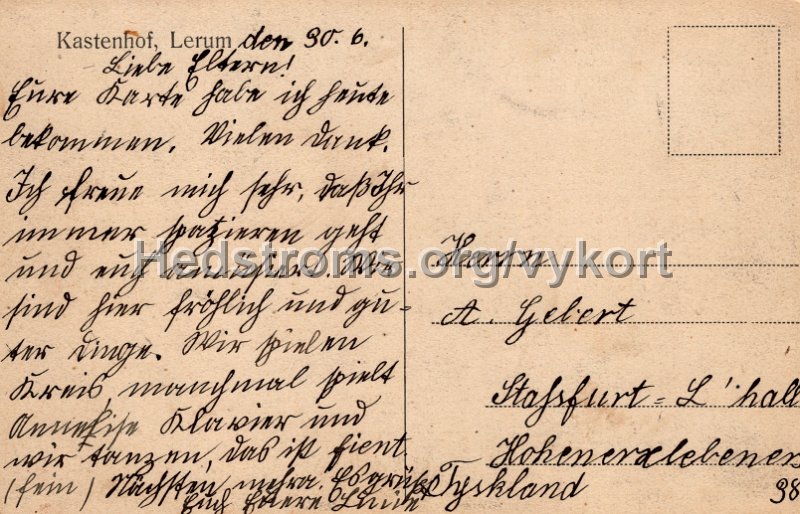 Kastenhof, Lerum den 30. 6.
Liebe Eltern!
Eure Karte habe ich heute
bekommen. Vielen Dank.
Ich freue mich sehr, daß Ihr
immer spazieren geht
und euch amüsiert. Wir
sind hier fröhlich und gu-
ter Dinge. Wir spielen
Kreis, manchmal spielt
Anneliese Klavier und
wir tanzen, das ist fient
(fein) Nächsten mehr. Es grüßt
Euch Euere
Hedstroms.org/vykort
Herrn
A. Gebert
Stassfurt - L'hall
Hohenerxlebener
Tyskland
38